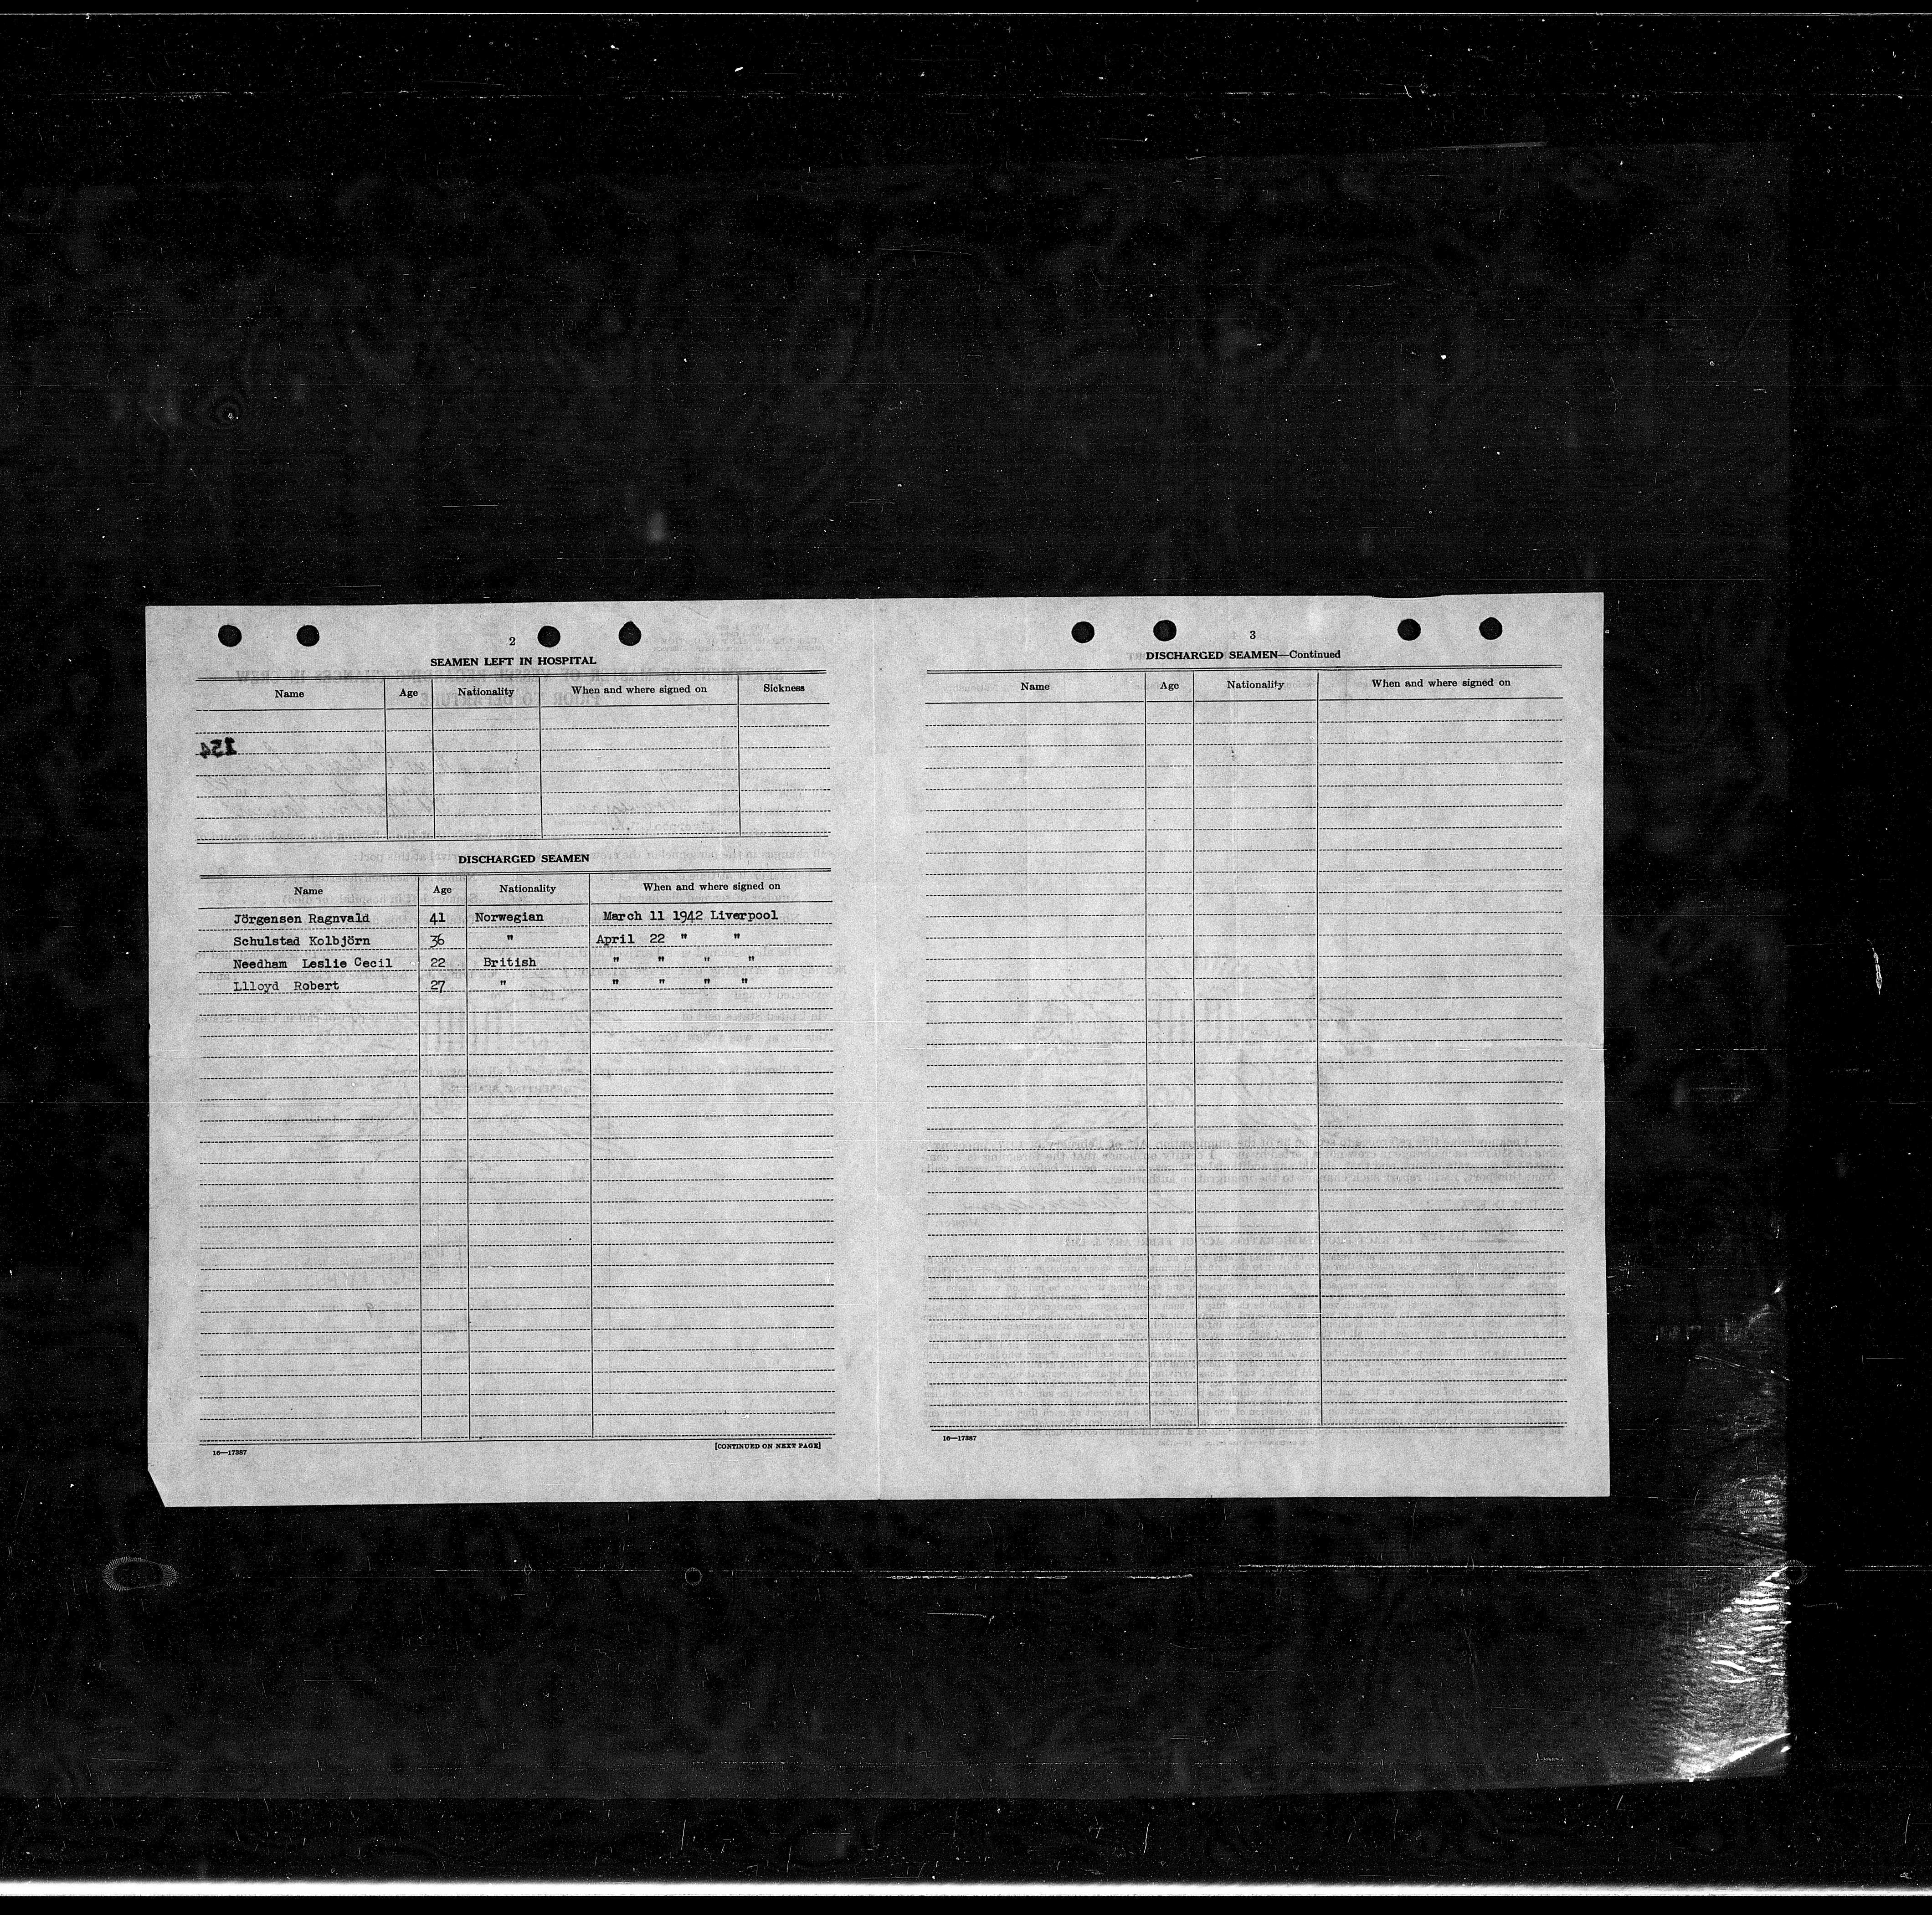 2
SEAMEN LEFT IN HOSPITAL
Name Age Nationality When and where signed on Sickness
154
DISCHARGED SEAMEN
Name Age Nationality When and where signed on
Jörgensen Ragnvald 41 Norwegian March 11 1942 Liverpool
Schulstad Kolbjörn 36 " April 22 " "
Needham Leslie Cecil 22 British " " " "
Llloyd Robert 27 " " " " "
16—17387 [CONTINUED ON NEXT PAGE]
3
DISCHARGED SEAMEN—Continued
Name Age Nationality When and where signed on
16—17387